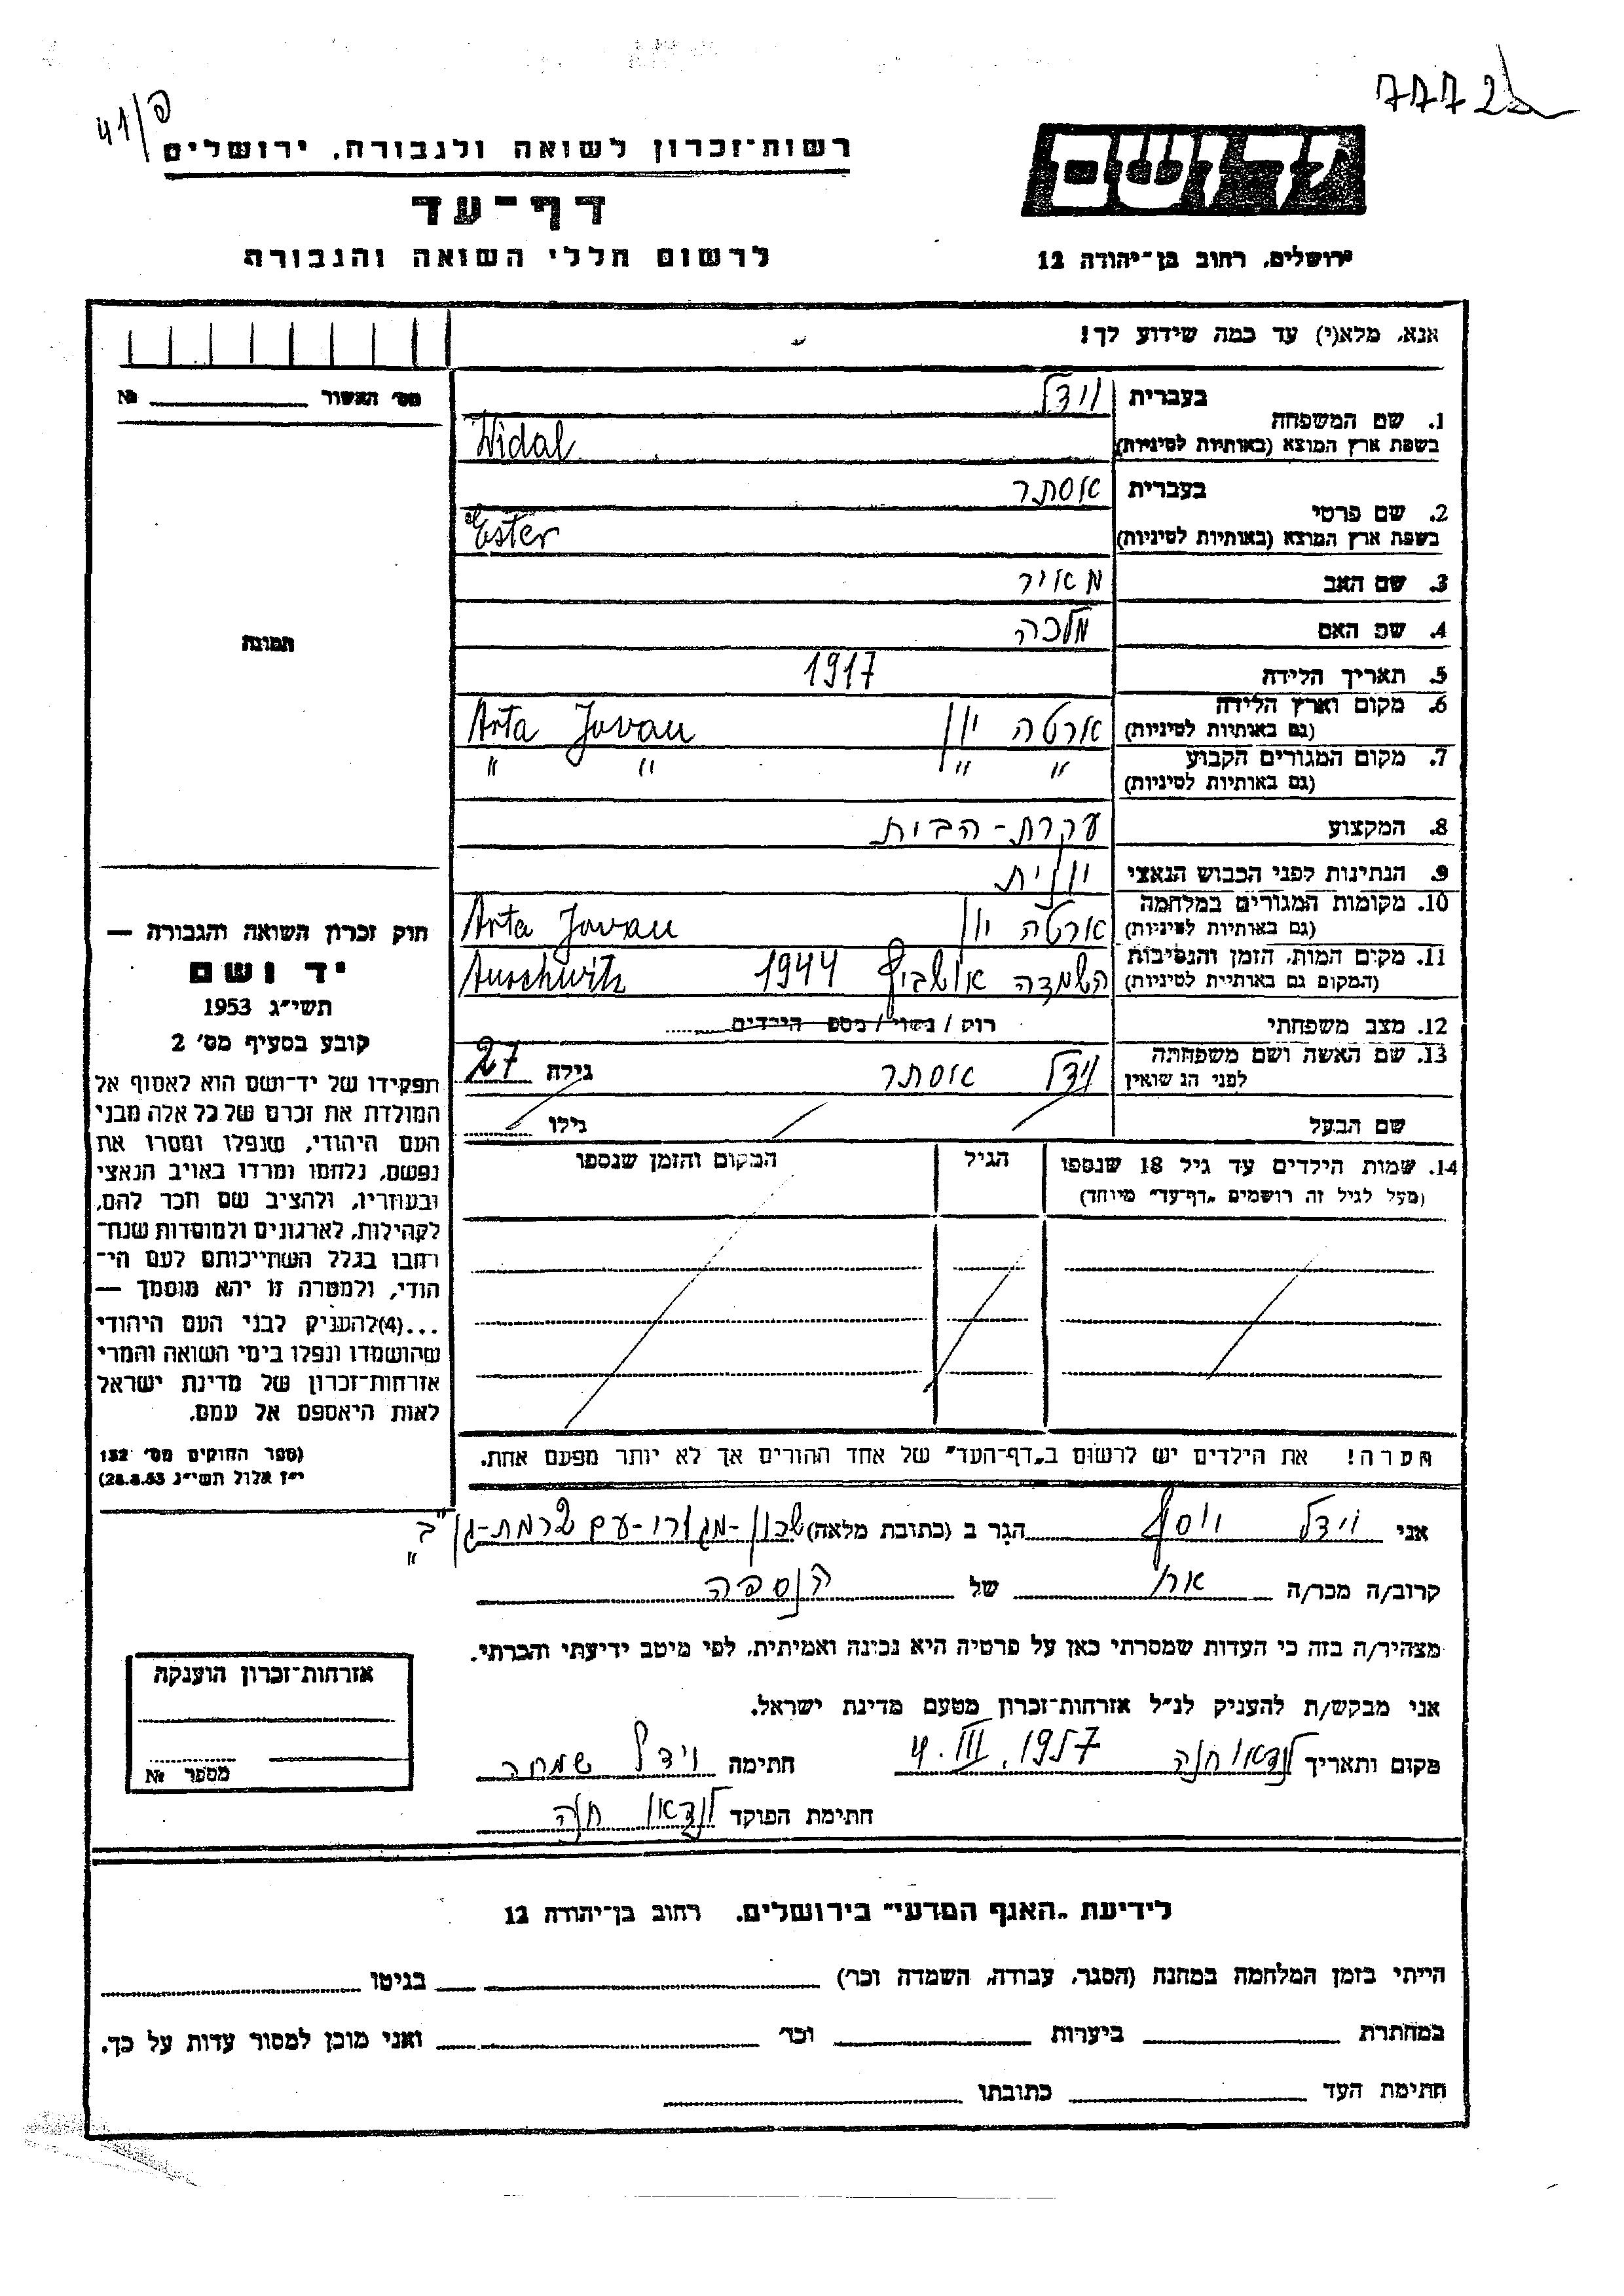 41/פ
7772
רשות־זכרון לשואה ולגבורה, ירושלים
דף־עד
לרשום חללי השואה והגבורה
יד ושם
ירושלים, רחוב בן־יהודה 12
אנא, מלא(י) עד כמה שידוע לך!
מס׳ האשור № 
1. שם המשפחה
בעברית וידל
בשפת ארץ המוצא (באותיות לטיניות) Widal
2. שם פרטי
בעברית אסתר
בשפת ארץ המוצא (באותיות לטיניות) Ester
3. שם האב מאיר
4. שם האם מלכה
5. תאריך הלידה 1917
6. מקום וארץ הלידה ארטה יון Arta Javan
(גם באותיות לטיניות)
7. מקום המגורים הקבוע " " " "
(גם באותיות לטיניות)
8. המקצוע עקרת-הבית
9. הנתינות לפני הכבוש הנאצי יונית
10. מקומות המגורים במלחמה ארטה יון Arta Javan
(גם באותיות לטיניות)
11. מקום המות, הזמן והנסיבות השמדה אושביץ 1944 Auschwitz
(המקום גם באותיות לטיניות)
12. מצב משפחתי רוק / נשוי / מספר הילדים
13. שם האשה ושם משפחתה וידל אסתר גילה 27
לפני הנשואין
שם הבעל גילו
14. שמות הילדים עד גיל 18 שנספו הגיל המקום והזמן שנספו
(מעל לגיל זה רושמים "דף־עד" מיוחד)
הערה! את הילדים יש לרשום ב"דף־העד" של אחד ההורים אך לא יותר מפעם אחת.
תמונה
חוק זכרון השואה והגבורה —
יד ושם
תשי״ג 1953
קובע בסעיף מס׳ 2
תפקידו של יד־ושם הוא לאסוף אל
המולדת את זכרם של כל אלה מבני
העם היהודי, שנפלו ומסרו את
נפשם, נלחמו ומרדו באויב הנאצי
ובעוזריו, ולהציב שם וזכר להם,
לקהילות, לארגונים ולמוסדות שנח־
רבו בגלל השתייכותם לעם הי־
הודי, ולמטרה זו יהא מוסמך —
...(4)להעניק לבני העם היהודי
שהושמדו ונפלו בימי השואה והמרי
אזרחות־זכרון של מדינת ישראל
לאות היאספם אל עמם.
(ספר החוקים מס׳ 132
י״ז אלול תשי״ג 28.8.53)
אני וידל יוסף הגר ב (כתובת מלאה) שכון-מגורו-עם רמת-גן "ב"
קרוב/ה מכר/ה אח של הנספה
מצהיר/ה בזה כי העדות שמסרתי כאן על פרטיה היא נכונה ואמיתית, לפי מיטב ידיעתי והכרתי.
אני מבקש/ת להעניק לנ״ל אזרחות־זכרון מטעם מדינת ישראל.
מקום ותאריך לנדאו חנה 4.III.1957 חתימה וידל שמחה
חתימת הפוקד לנדאו חנה
אזרחות־זכרון הוענקה
מספר №
לידיעת "האגף המדעי" בירושלים, רחוב בן־יהודה 12
הייתי בזמן המלחמה במחנה (הסגר, עבודה, השמדה וכר׳) בגיטו
במחתרת ביערות וכר׳ ואני מוכן למסור עדות על כך.
חתימת העד כתובתו